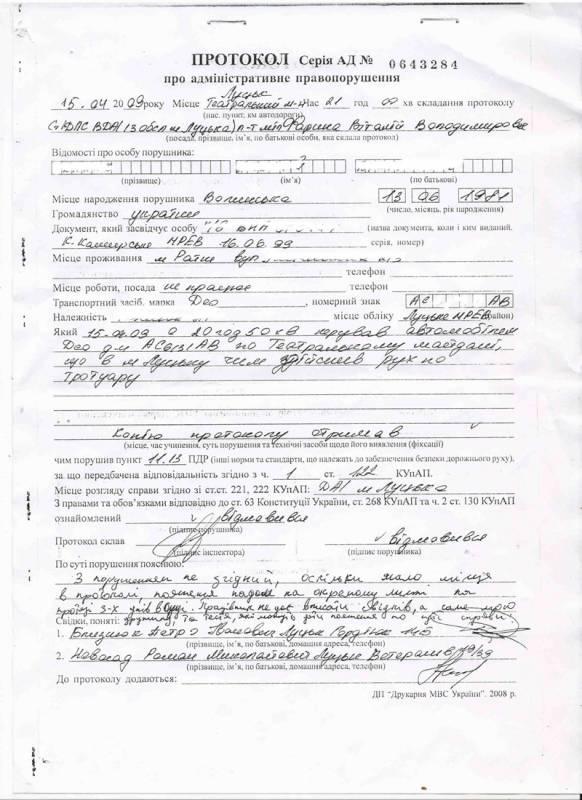 ПРОТОКОЛ Серія АД № 0643284
про адміністративне правопорушення
Луцьк
15.04 2009 року Місце Театральний м-н Час 21 год 00 хв складання протоколу
(нас. пункт, км автодороги)
ВДАІ з обсл м Луцька) п-т міл Фарина Віталій Володимирович
(посада, прізвище, ім'я, по батькові особи, яка склала протокол)
Відомості про особу порушника:
(прізвище) (ім'я) (по батькові)
Місце народження порушника Волинська 13 06 1981
Громадянство україна (число, місяць, рік народження)
Документ, який засвідчує особу (назва документа, коли і ким виданий,
К. Каширське МРЕВ 16.06.99 серія, номер)
Місце проживання м Ратне вул
телефон
Місце роботи, посада не працює телефон
Транспортний засіб, марка Део , номерний знак АС АВ
Належність місце обліку Луцьке МРЕВ
Який 15.04.09 о 20 год 50 хв керував автомобілем
Део АС АВ по Театральному майдані,
що в м Луцьку чим здійснив рух по
тротуару
Копію протоколу отримав
(місце, час учинення, суть порушення та технічні засоби щодо його виявлення (фіксації)
чим порушив пункт 11.13 ПДР (інші норми та стандарти, що належать до забезпечення безпеки дорожнього руху),
за що передбачена відповідальність згідно з ч. 1 ст. 122 КУпАП.
Місце розгляду справи згідно зі ст.ст. 221, 222 КУпАП: ДАІ м Луцька
З правами та обов'язками відповідно до ст. 63 Конституції України, ст. 268 КУпАП та ч. 2 ст. 130 КУпАП
ознайомлений відмовився
(підпис порушника)
Протокол склав відмовився
(підпис інспектора) (підпис порушника)
По суті порушення пояснюю:
З порушенням не згідний, оскільки мало місця
в протоколі, пояснення подам на окремому листі по
3-х днів в суді. Працівник не дав вписати свідків, а саме мою
Свідки, поняті: дружину, та тестя, які можуть дати пояснення по цій справі
1. Петро Іванович Луцьк Гордіюк
(прізвище, ім'я, по батькові, домашня адреса, телефон)
2. Новосад Роман Миколайович Луцьк Ветеранів
(прізвище, ім'я, по батькові, домашня адреса, телефон)
До протоколу додаються:
ДП "Друкарня МВС України". 2008 р.